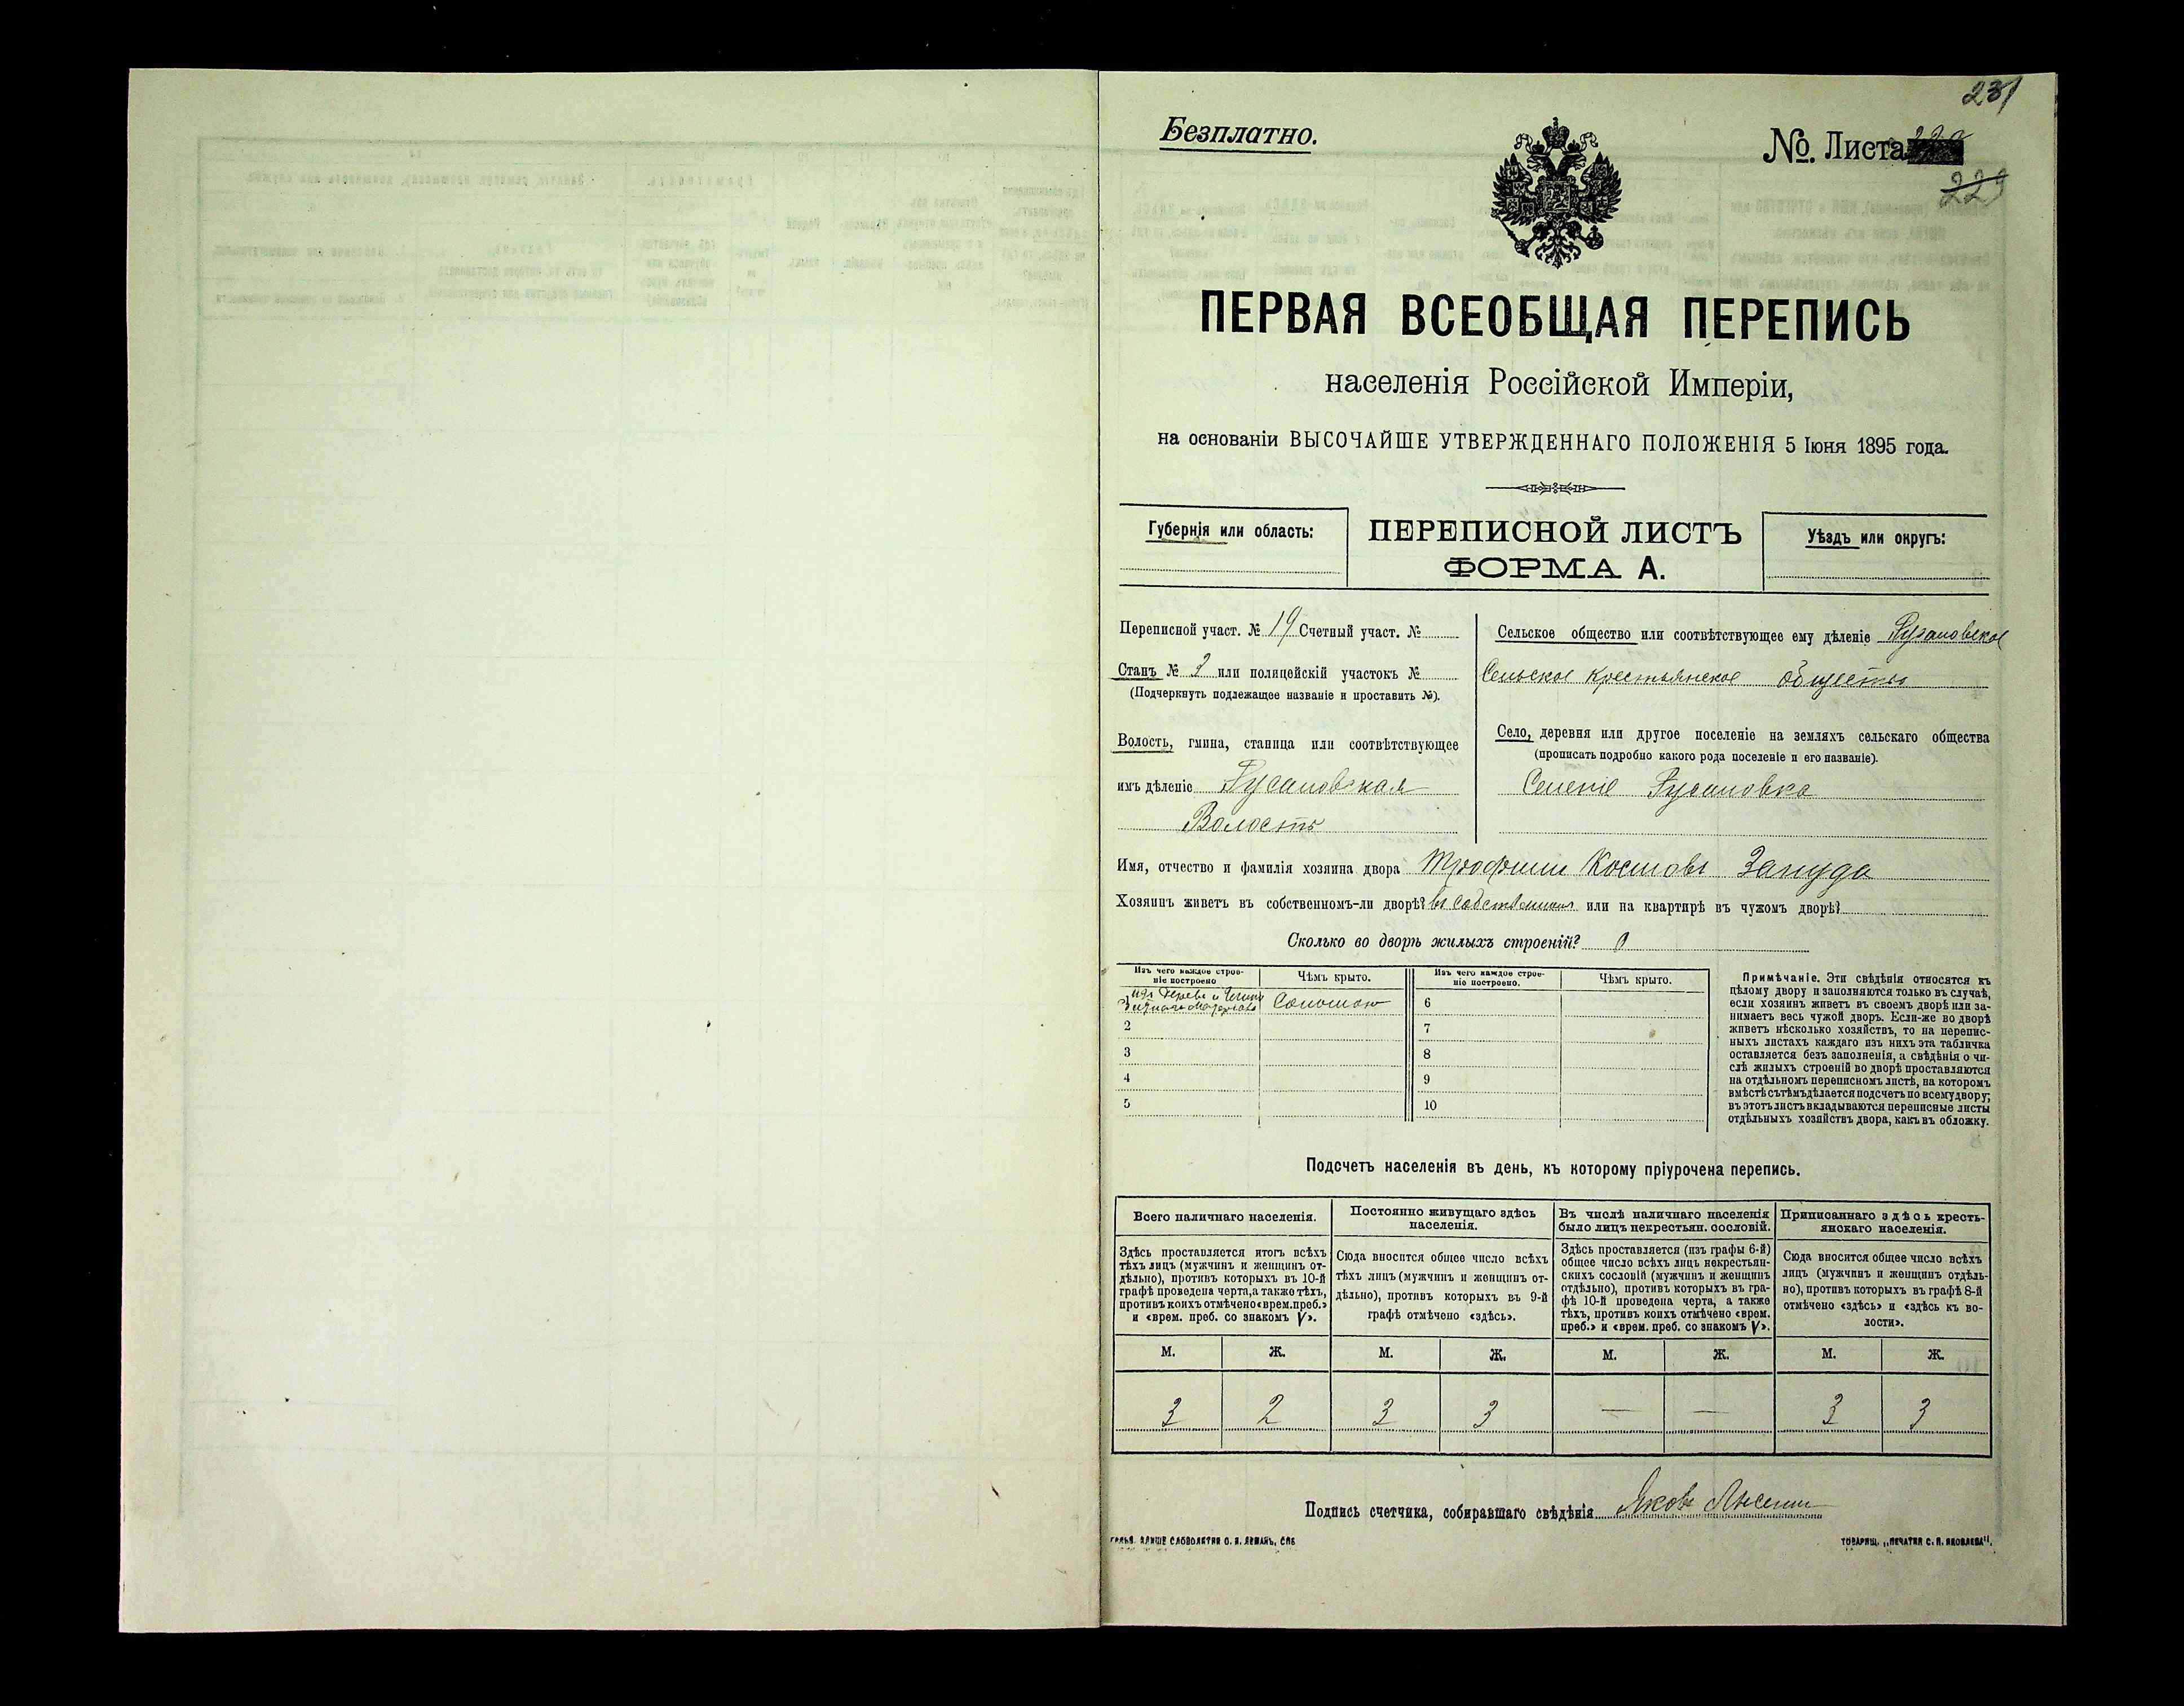 231
Безплатно.
№. Листа
229
ПЕРВАЯ ВСЕОБЩАЯ ПЕРЕПИСЬ
населенія Россійской Имперіи,
на основаніи ВЫСОЧАЙШЕ УТВЕРЖДЕННАГО ПОЛОЖЕНІЯ 5 Іюня 1895 года.
Губернія или область:
ПЕРЕПИСНОЙ ЛИСТЪ
ФОРМА А.
Уѣздъ или округъ:
Переписной участ. № 19 Счетный участ. №
Станъ № 2 или полицейскій участокъ №
(Подчеркнуть подлежащее названіе и проставить №).
Волость, гмина, станица или соотвѣтствующее
имъ дѣленіе Русановская
Волость
Сельское общество или соотвѣтствующее ему дѣленіе Русановское
Сельское Крестьянское общество
Село, деревня или другое поселеніе на земляхъ сельскаго общества
(прописать подробно какого рода поселеніе и его названіе).
Селеніе Русановка
Имя, отчество и фамилія хозяина двора Трофимъ Космовъ Запуда
Хозяинъ живетъ въ собственномъ-ли дворѣ? въ собственномъ или на квартирѣ въ чужомъ дворѣ?
Сколько во дворѣ жилыхъ строеній?
Изъ чего каждое строе-
ніе построено
Чѣмъ крыто.
Изъ чего каждое строе-
ніе построено.
Чѣмъ крыто.
изъ дерева и глины
Соломою
2
3
4
5
6
7
8
9
10
Примѣчаніе. Эти свѣдѣнія относятся къ
цѣлому двору и заполняются только въ случаѣ,
если хозяинъ живетъ въ своемъ дворѣ или за-
нимаетъ весь чужой дворъ. Если-же во дворѣ
живетъ нѣсколько хозяйствъ, то на перепис-
ныхъ листахъ каждаго изъ нихъ эта табличка
оставляется безъ заполненія, а свѣдѣнія о чи-
слѣ жилыхъ строеній во дворѣ проставляются
на отдѣльномъ переписномъ листѣ, на которомъ
вмѣстѣ съ тѣмъ дѣлается подсчетъ по всему двору;
въ этотъ листъ вкладываются переписные листы
отдѣльныхъ хозяйствъ двора, какъ въ обложку.
Подсчетъ населенія въ день, къ которому пріурочена перепись.
Всего наличнаго населенія.
Здѣсь проставляется итогъ всѣхъ
тѣхъ лицъ (мужчинъ и женщинъ от-
дѣльно), противъ которыхъ въ 10-й
графѣ проведена черта, а также тѣхъ,
противъ коихъ отмѣчено «врем. преб.»
и «врем. преб. со знакомъ V».
Постоянно живущаго здѣсь
населенія.
Сюда вносится общее число всѣхъ
тѣхъ лицъ (мужчинъ и женщинъ от-
дѣльно), противъ которыхъ въ 9-й
графѣ отмѣчено «здѣсь».
Въ числѣ наличнаго населенія
было лицъ некрестьян. сословій.
Здѣсь проставляется (изъ графы 6-й)
общее число всѣхъ лицъ некрестьян-
скихъ сословій (мужчинъ и женщинъ
отдѣльно), противъ которыхъ въ гра-
фѣ 10-й проведена черта, а также
тѣхъ, противъ коихъ отмѣчено «врем.
преб.» и «врем. преб. со знакомъ V».
Приписаннаго здѣсь кресть-
янскаго населенія.
Сюда вносится общее число всѣхъ
лицъ (мужчинъ и женщинъ отдѣль-
но), противъ которыхъ въ графѣ 8-й
отмѣчено «здѣсь» и «здѣсь къ во-
лости».
М. Ж. М. Ж. М. Ж. М. Ж.
3 2 3 3 — — 3 3
Подпись счетчика, собиравшаго свѣдѣнія Яковъ
ТОВАРИЩ. „ПЕЧАТНЯ С. П. ЯКОВЛЕВА".